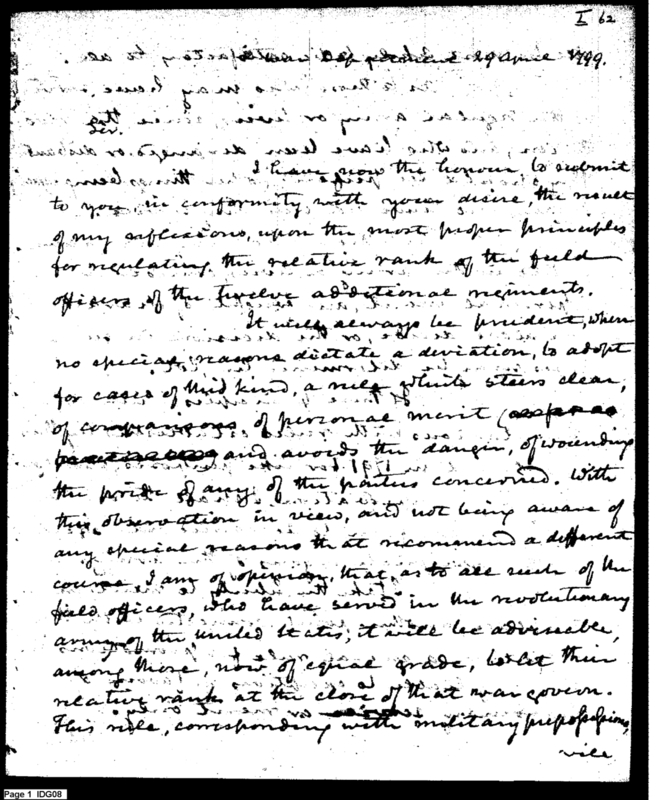 I 62
29 April 1799.
Sir.
I have now the honour, to submit
to you, in conformity with your desire, the result
of my reflexions, upon the most proper principles
for regulating the relative rank of the field
officers of the twelve additional regiments.
It will always be prudent, when
no special reasons dictate a deviation, to adopt
for cases of this kind, a rule which steers clear,
of comparisons, of personal merit
and avoids the danger, of wounding
the pride of any of the parties concerned. With
this observation in view, and not being aware of
any special reasons that recommend a different
course, I am of opinion, that, as to all such of the
field officers, who have served in the revolutionary
army of the united States, it will be adviseable,
among those, now of equal grade, to let their
relative rank at the close of that war govern.
This rule, corresponding with military prepossessions,
will
Page 1 IDG08